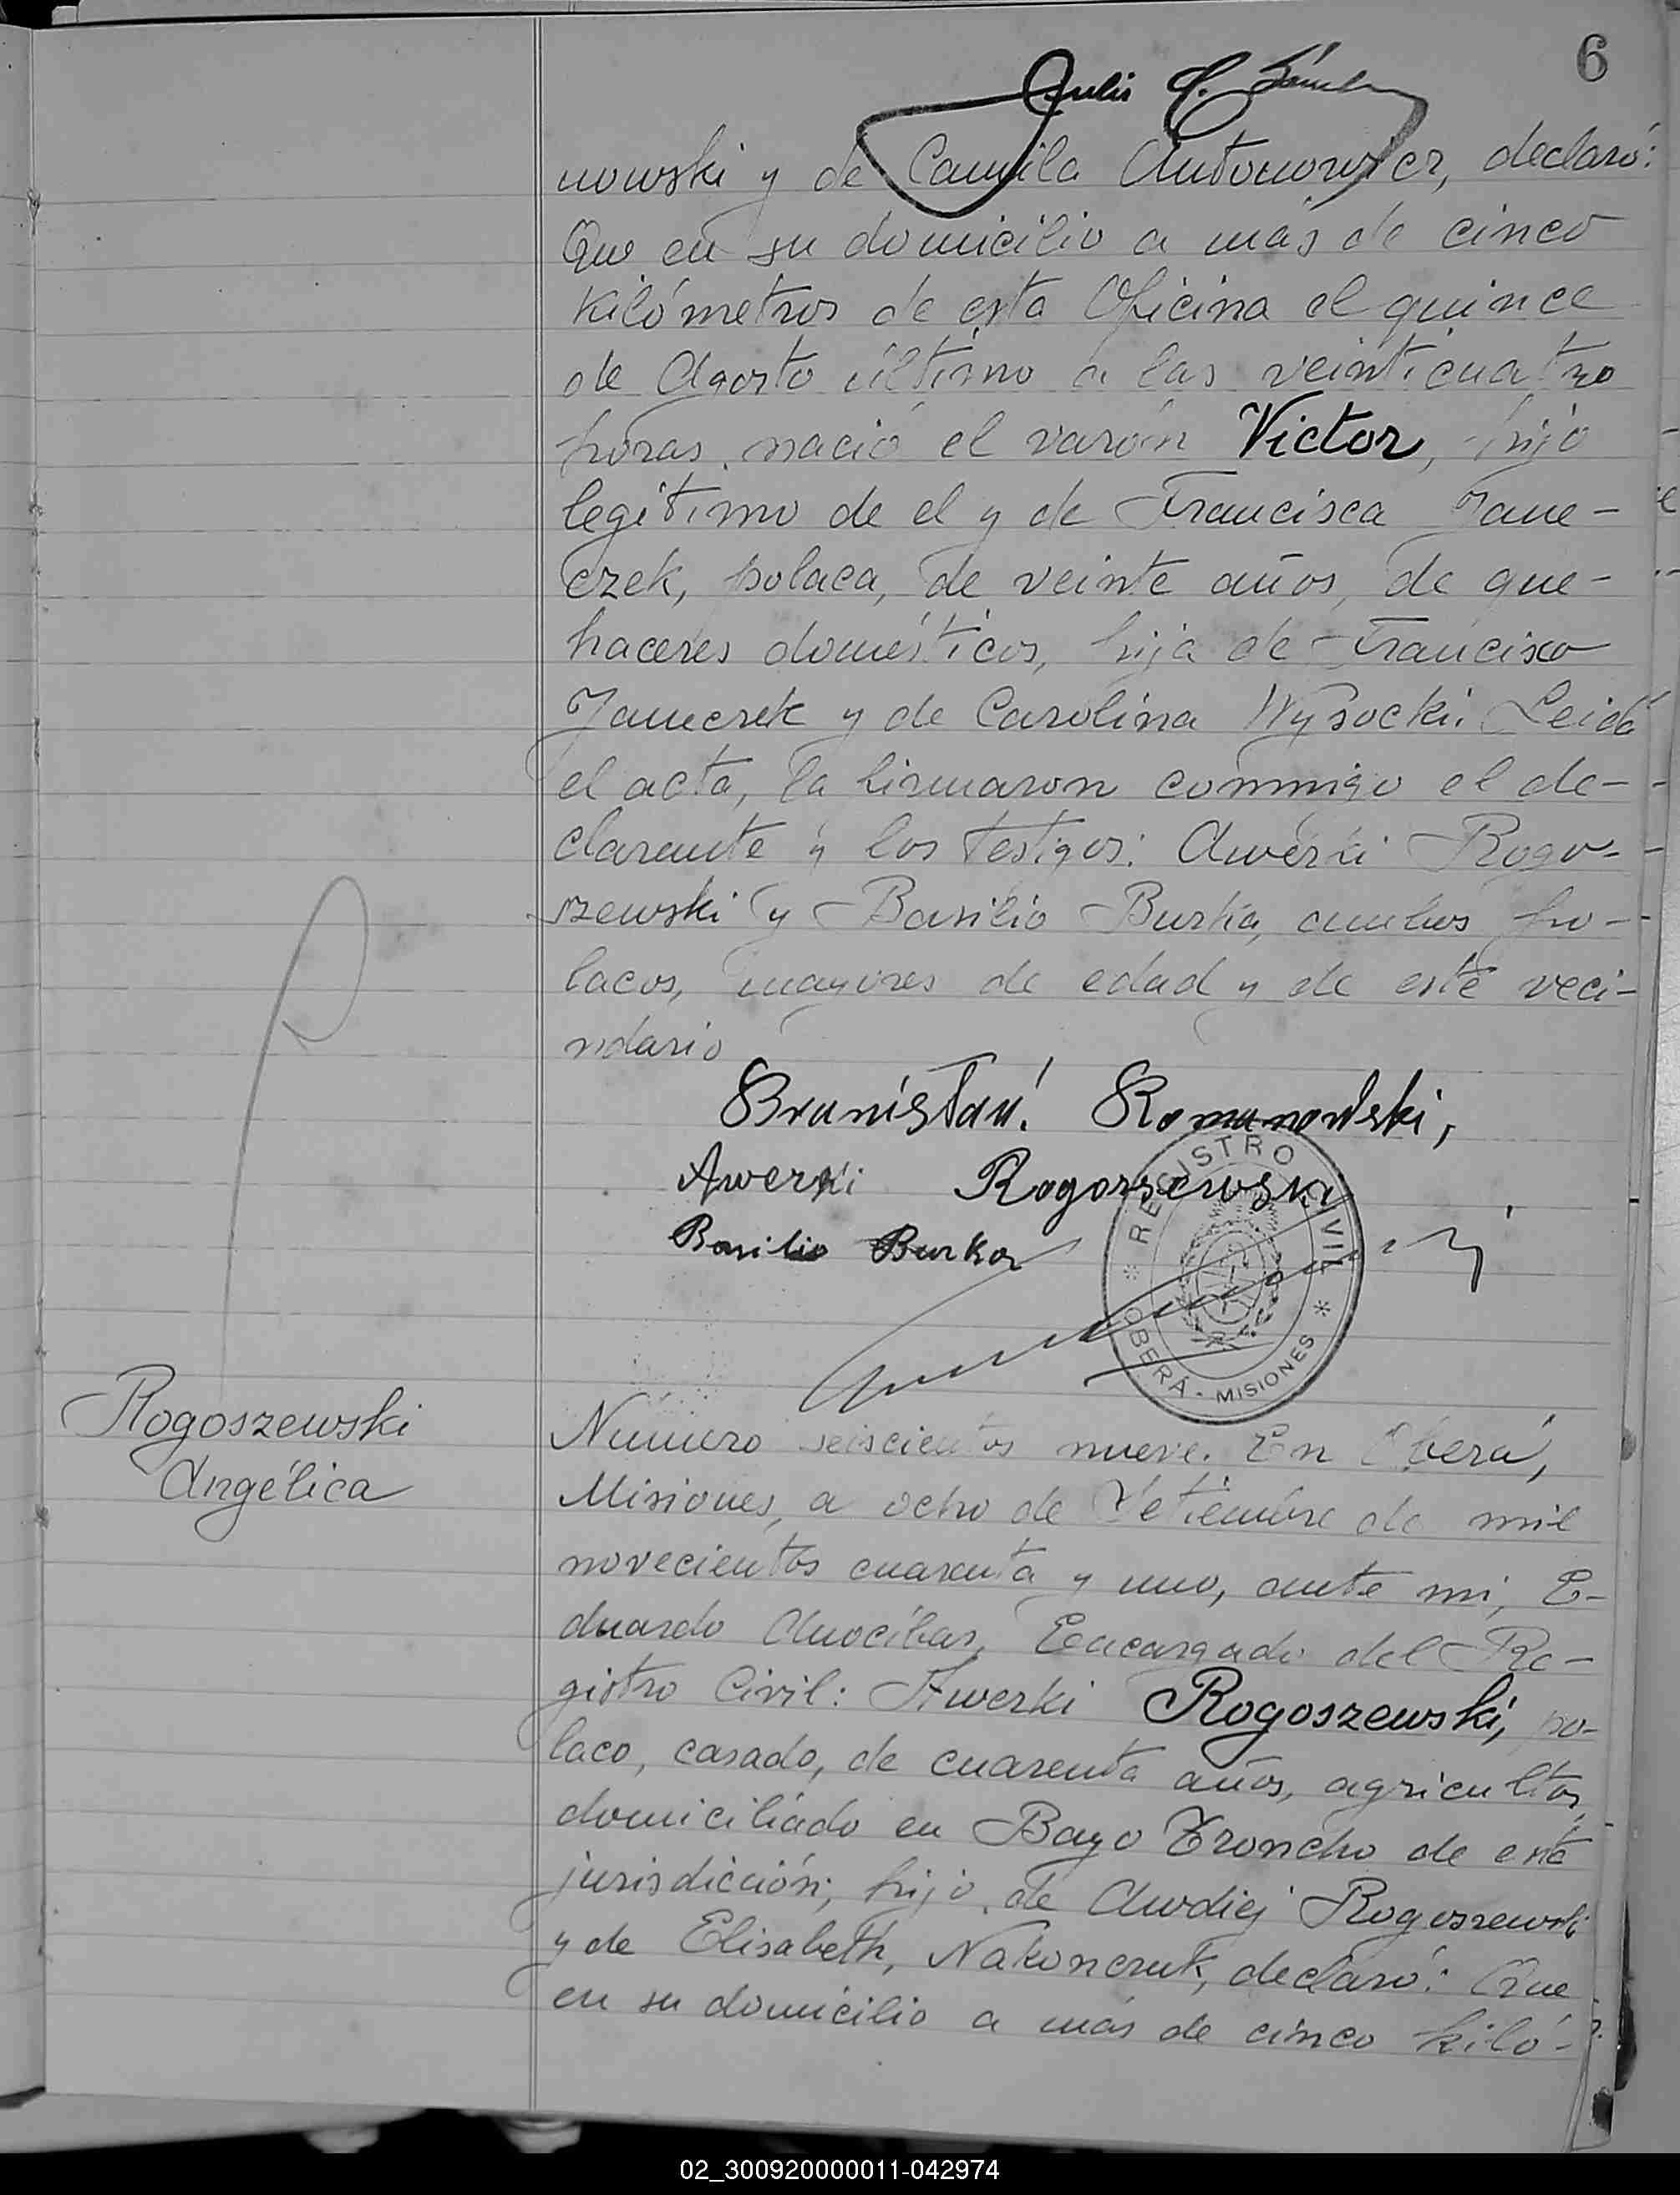 6
nowski y de Camila Antonowicz, declaró:
Que en su domicilio a más de cinco
kilómetros de esta Oficina el quince
de Agosto último a las veinticuatro
horas nació el varón Victor, hijo
legítimo de el y de Francisca Jane-
czek, polaca, de veinte años, de que-
haceres domésticos, hija de Francisco
Janeczek y de Carolina Wysocki. Leida
el acta, la firmaron conmigo el de-
clarante y los testigos: Awerki Rogo-
szewski y Basilio Burka, ambos po-
lacos, mayores de edad y de este veci-
ndario
Bronisław Romanowski,
Awerki Rogoszewski
Basilio Burka
REGISTRO CIVIL
OBERÁ - MISIONES
Rogoszewski
Angélica
Número seiscientos nueve. En Oberá,
Misiones, a ocho de Setiembre de mil
novecientos cuarenta y uno, ante mi, E-
duardo Anocíbar, Encargado del Re-
gistro Civil: Awerki Rogoszewski, po-
laco, casado, de cuarenta años, agricultor,
domiciliado en Bayo Troncho de esta
jurisdicción; hijo de Awdiej Rogoszewski
y de Elisabeth, Nakonczuk, declaró: Que
en su domicilio a más de cinco kiló-
02_300920000011-042974